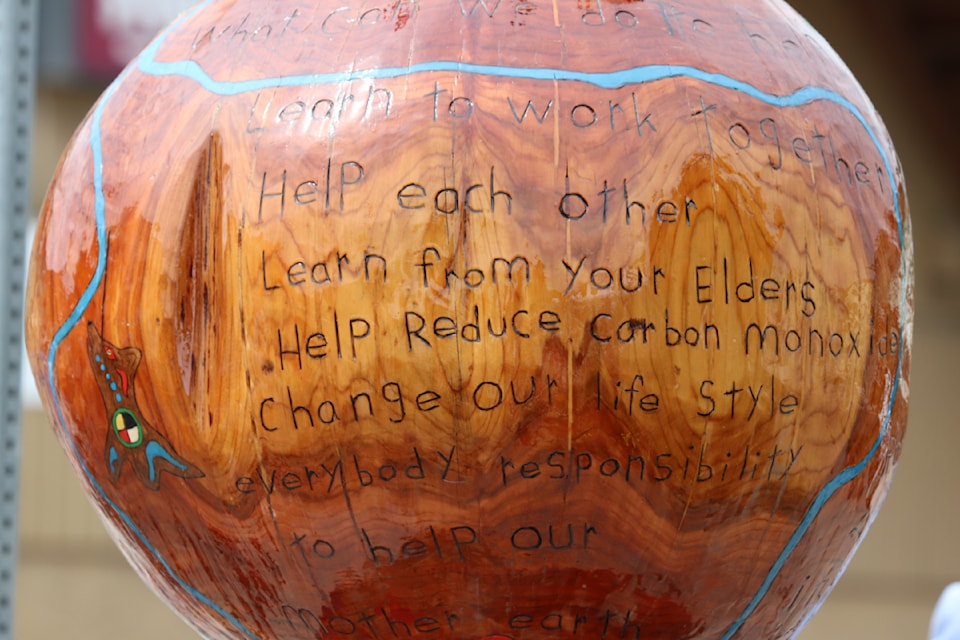 What can We do to
Learn to work together
Help each other
Learn from your Elders
Help Reduce Carbon Monoxide
Change our life Style
everybody responsibility
to help our
mother earth